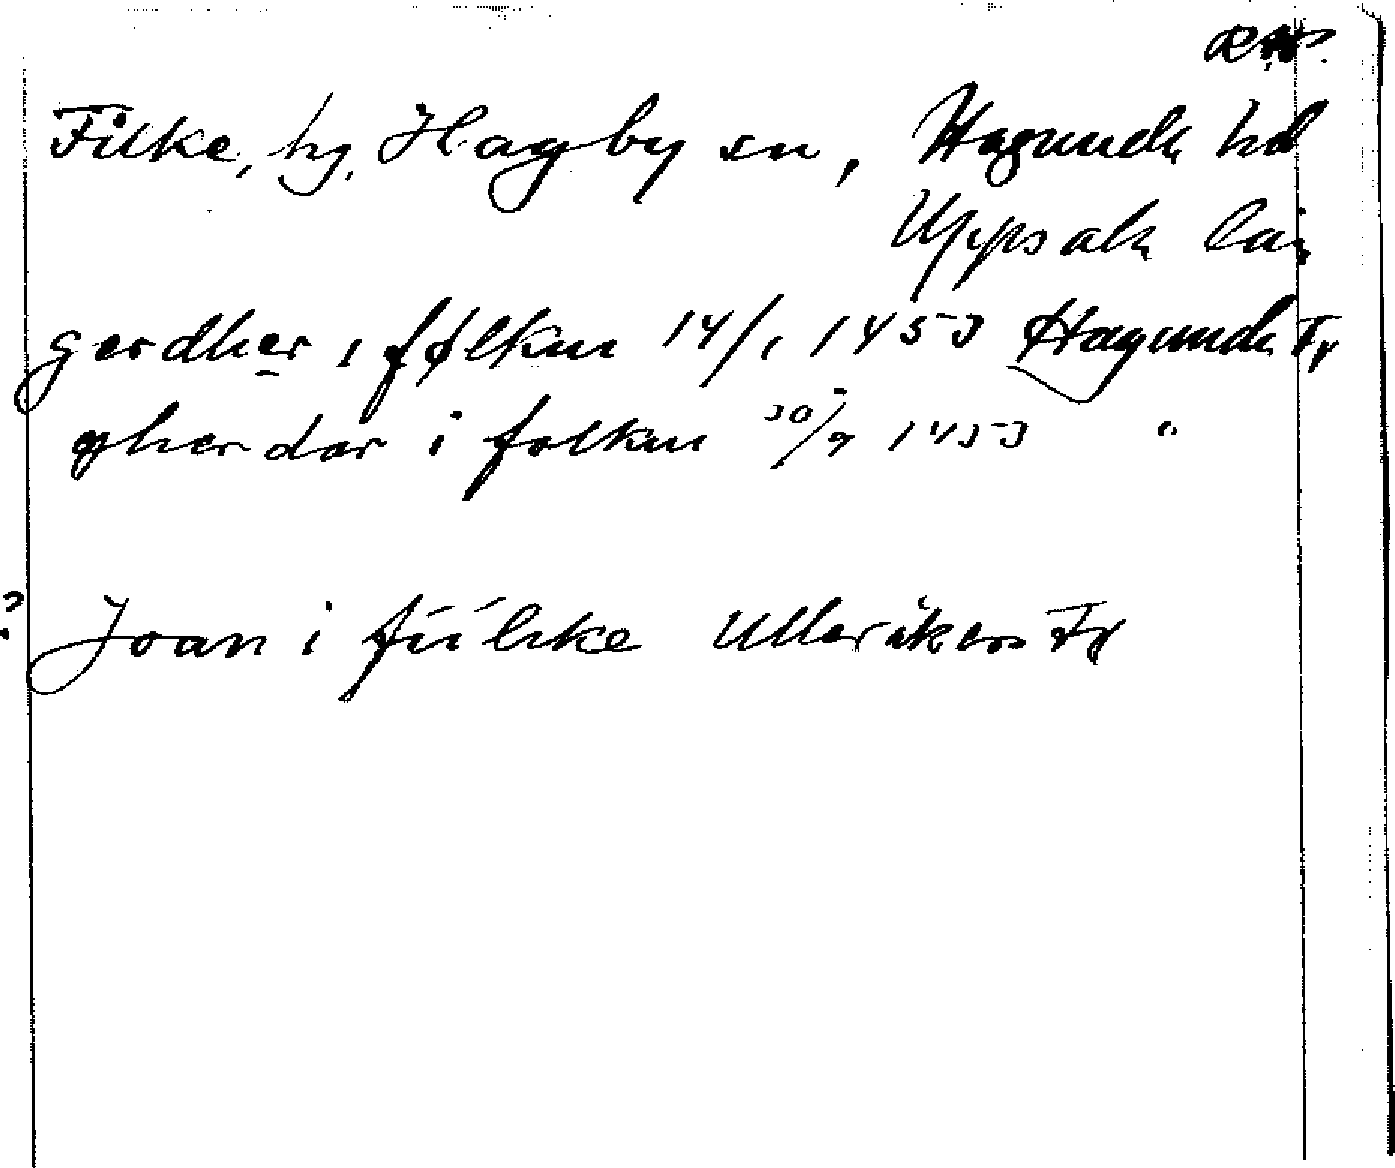 Filke, by, Hagby sn, Hagunda hd
Uppsala län
gerdher i følkm 14/1 1453 Hagunda Fr
gherdar i folkm 30/9 1453 "
? Joan i fúlike Ulleråkers Fr